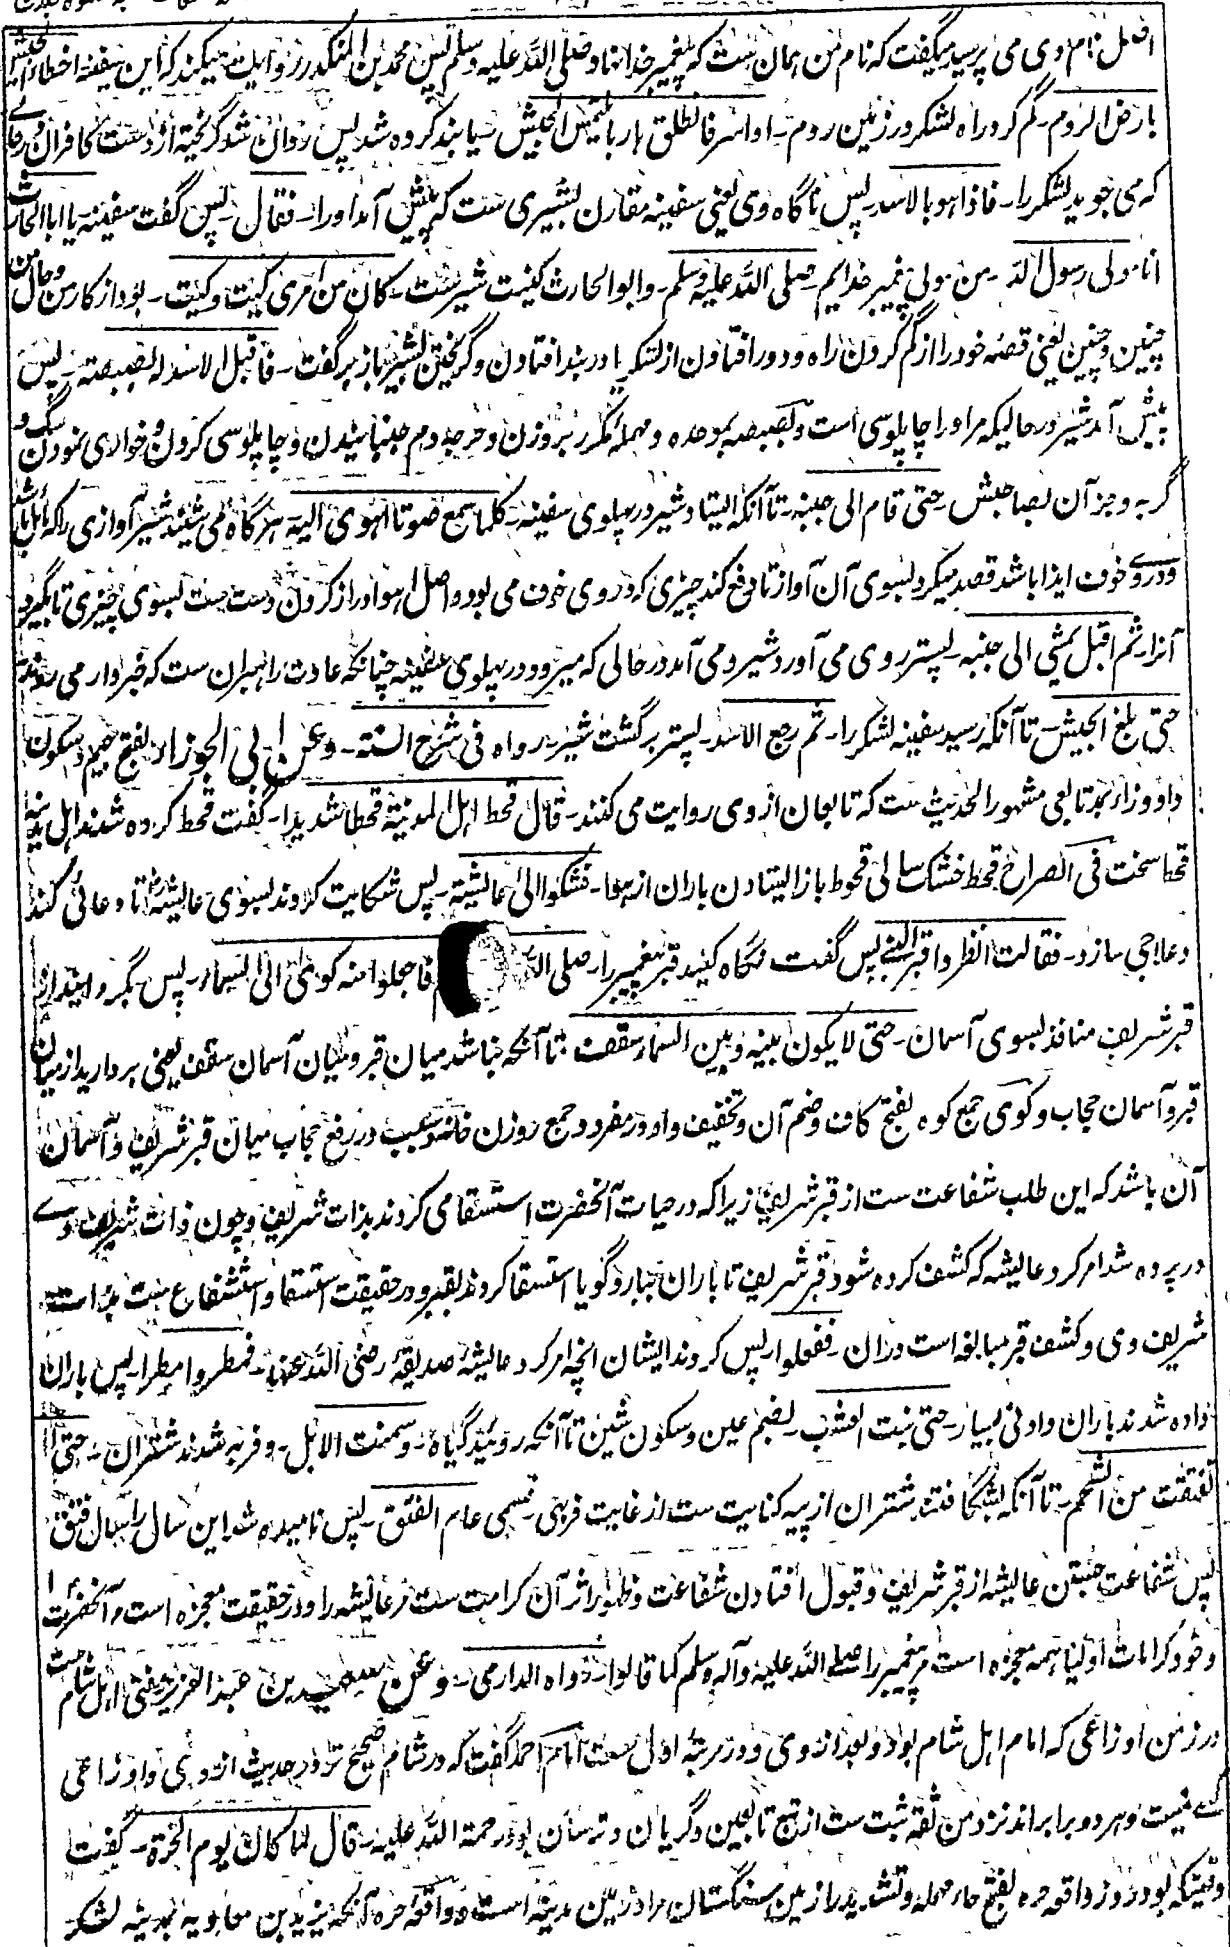 افضل نام وی می پرسید میگفت که نام من همان ست که پیغمبر خدا نهاد صلی الله علیه وسلم پس محمد بن المنکدر روایت میکند که این سفینه اخطاء الجیش
بارض الروم۔ گم کرد راه لشکر در زمین روم۔ او اسر فانطلق هاربا یلتمس الجیش۔ یا بند کرده شد پس روان شد گریخته از دست کافران در حالے
که می جوید لشکر را۔ فاذا هو بالاسد۔ پس ناگاه وی یعنی سفینه مقارن بشیری ست که پیش آمد او را۔ فقال۔ پس گفت سفینه یا ابا الحارث
انا مولی رسول الله۔ من مولی پیغمبر خدایم۔ صلی الله علیه وسلم۔ وابو الحارث کنیت شیر ست۔ کان من امری کیت وکیت۔ بود از کار من وحال من
چنین وچنین یعنی قصه خود را از گم کردن راه ودور افتادن از لشکر یا در بند افتادن وگریختن بشیر باز بر گفت۔ فاقبل الاسد له بصبصته۔ پس
پیش آمد شیر در حالیکه مر او را چاپلوسی است وبصبصه بموحده ومهمله مکرر بر وزن دحرجه دم جنبانیدن وچاپلوسی کردن وخواری نمودن سگ و
گربه وجز آن بصاحبش۔ حتی قام الی جنبه۔ تا آنکه ایستاد شیر در پهلوی سفینه۔ کلما سمع صوتا اهوی الیه هر گاه می شنید شیر آوازی را که
ودروے خوف ایذا باشد قصد میکرد بسوی آن آواز تا دفع کند چیزی که در وی خوف می بود واصل اهوا دراز کردن دست ست بسوی چیزی تا بگیرد
آنرا۔ ثم اقبل یمشی الی جنبه۔ پستر روی می آورد شیر ومی آمد در حالی که میرود در پهلوی سفینه چنانکه عادت راهبران ست که خبردار می روند
حتی بلغ الجیش۔ تا آنکه رسید سفینه لشکر را۔ ثم رجع الاسد۔ پستر برگشت شیر۔ رواه فی شرح السنة۔ وعن ابی الجوزاء۔ بفتح جیم وسکون
واو وزا ء بمد تابعی مشهور الحدیث ست که تابعان از وی روایت می کنند۔ قال قحط اهل المدینة قحطا شدیدا۔ گفت قحط کرده شدند اهل مدینه
قحطا سخت فی الصراح قحط خشک سالی قحوط باز ایستادن باران از هوا۔ فشکوا الی عائشة۔ پس شکایت کردند بسوی عائشة تا دعائی کند
وعلاجی سازد۔ فقالت انظروا قبر النبی پس گفت نگاه کنید قبر پیغمبر را۔ صلی الله فاجعلوا منه کوی الی السماء۔ پس بگردانید از
قبر شریف منافذ بسوی آسمان۔ حتی لا یکون بینه وبین السماء سقف۔ تا آنکه نباشد میان قبر ومیان آسمان سقف یعنی بردارید از میان
قبر وآسمان حجاب وکوی جمع کوه بفتح کاف وضم آن وتخفیف واو در مفرد وجمع روزن خانه وسبب در رفع حجاب میان قبر شریف وآسمان
آن باشد که این طلب شفاعت ست از قبر شریف زیرا که در حیات آنحضرت استسقا می کردند بذات شریف وچون ذات شریف وے
در پرده شد امر کرد عائشه که کشف کرده شود قبر شریف تا باران ببارد گویا استسقا کردند بقبر ودر حقیقت استسقا واستشفاع ست بذات
شریف وی وکشف قبر مبالغه است دران۔ ففعلوا۔ پس کردند ایشان انچه امر کرد عائشه صدیقه رضی الله عنها۔ فمطروا مطرا۔ پس باران
داده شدند باران دادنی بسیار۔ حتی نبت العشب۔ بضم عین وسکون شین تا آنکه روئید گیاه۔ وسمنت الابل۔ وفربه شدند شتران۔ حتی
تفتقت من الشحم۔ تا آنکه بشگافتند شتران از پیه کنایت ست از غایت فربهی۔ فسمی عام الفتق۔ پس نامیده شد این سال را سال فتق
پس شفاعت جستن عائشه از قبر شریف وقبول افتادن شفاعت وظهور اثر آن کرامت ست مر عائشه را ودر حقیقت معجزه است مر آنحضرت را
وخود کرامات اولیا همه معجزه است مر پیغمبر را صلی الله علیه وآله وسلم کما قالوا۔ رواه الدارمی۔ وعن سعید بن عبد العزیز مفتی اهل شام ست
در زمن اوزاعی که امام اهل شام بود وبعد از وی ودر مرتبه اولی ست امام احمد گفت که در شام صحیح تر در حدیث از وی واوزاعی
کسے نیست وهر دو برابر اند نزد من ثقه ثبت ست از تبع تابعین وگریان وترسان بود رحمة الله علیه۔ قال لما کان یوم الحرة۔ گفت
وقتیکه بود روز واقعه حره بفتح حاء مهمله وتشدید را زمین سنگستان مراد زمین مدینه است وواقعه حره آنکه یزید بن معاویه بمدینه لشکر